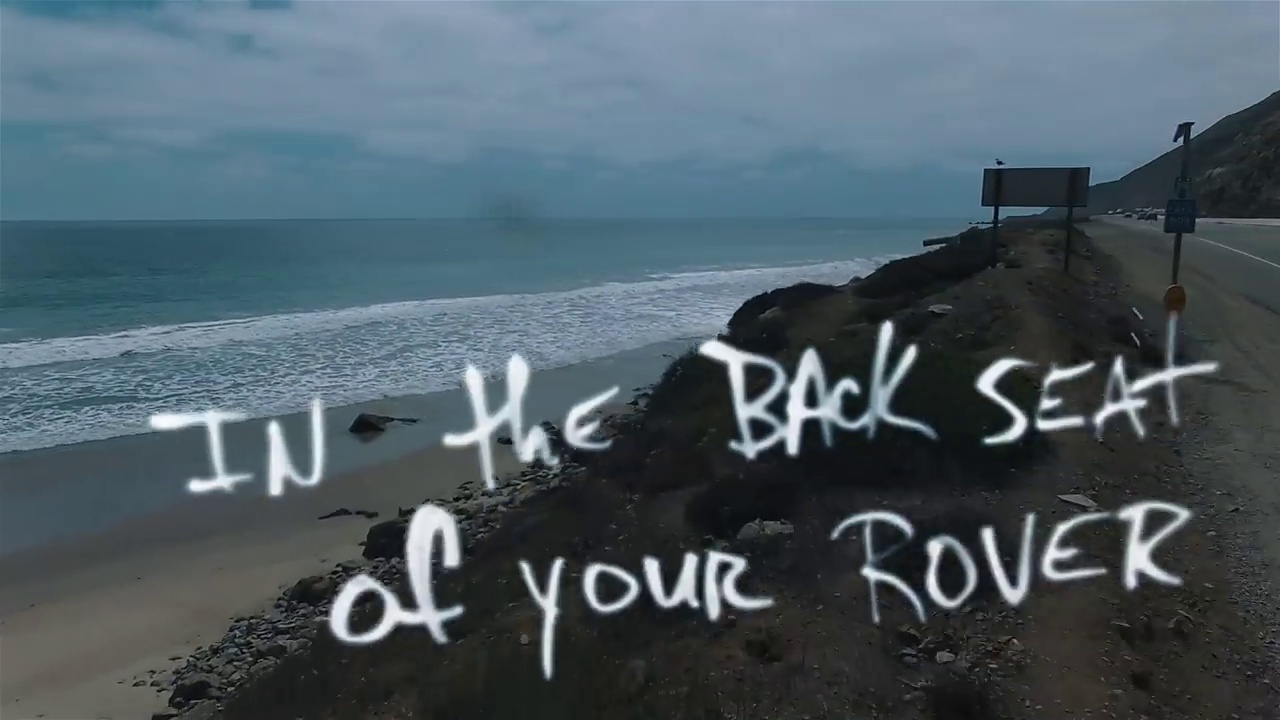 IN the BACK SEAT
of your ROVER